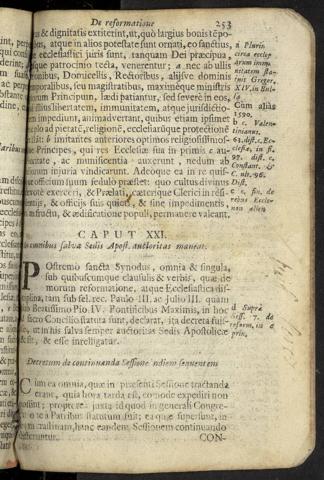 De reformatione 253
& dignitatis extiterit, ut, quò largius bonis tēpo-
bus, atque in alios potestate sunt ornati, eo sanctius,
ecclesiastici juris sunt, tanquam Dei præcipua,
ejusque patrocinio tecta, venerentur; a nec ab ullis
Baronibus, Domicellis, Rectoribus, aliisve dominis
temporalibus, seu magistratibus, maximéque ministris
Principum, lædi patiantur, sed severè in eos,
libertatem, immunitatem, atque jurisdictio-
impediunt, animadvertant, quibus etiam ipsimet
pietatē, religionē, ecclesiarūque protectionē
b imitantes anteriores optimos religiosissimos-
que Principes, qui res Ecclesiæ sua in primis c au-
ctoritate, ac munificentia auxerunt, nedum ab
injuria vindicarunt. Adeoque ea in re quis-
que officium suum sedulo præstet: quo cultus divinus
exerceri, & Prælati, cæterique Clerici in resi-
dentiis, & officiis suis quieti, & sine impedimentis,
fructu, & ædificatione populi, permanere valeant.
a Plurin
circa eccles
Gregor.
XIV. in Bul-
la
Cum aliàs
1590.
b c. Valen-
tinianus.
63. dist. c.
Ecclesiæ, in fi.
97. dist. c.
Constant. &
C. ult. 96.
Dist.
CAPUT XXI.
In omnibus salva Sedis Apost. auctoritas maneat.
POstremo sancta Synodus, omnia & singula,
sub quibuscumque clausulis & verbis, quæ de
morum reformatione, atque Ecclesiastica disci-
plina, tam sub fel. rec. Paulo III. ac Julio III. quàm
sub Beatissimo Pio IV. Pontificibus Maximis, in hoc
sacro Concilio statuta sunt, declarat, ita decreta fuis-
se, ut in his salva semper auctoritas Sedis Apostolicæ
& sit, & esse intelligatur.
d Suprà
Sess. 7. de
reform. in
prin.
Decretum de continuanda Sessione in diem sequentem
CUm ea omnia, quæ in præsenti Sessione tractanda
erant, quia hora tarda est, commodè expediri non
possint; propterea juxta id quod in generali Congre-
gatione à Patribus statutum fuit; ea quæ supersunt, in
diem crastinam, hanc eandem Sessionem continuando
differuntur.
CON-